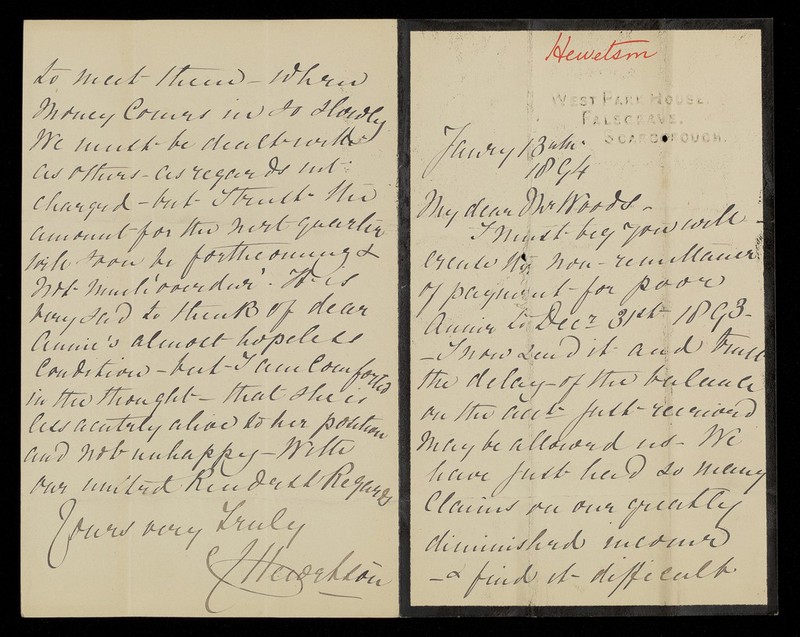 Hewetson
WEST PARK HOUSE.
FALSGRAVE.
SCARBOROUGH.
Janry 13th
1894
My dear Mr Woods -
I must beg you will
excuse the non-remittance
of payment for poor
Annie to Decr 31st 1893 -
- I now send it and trust
the delay - of the balance
on the acct just received
may be allowed us - We
have just had so many
Claims on our greatly
diminished income
- & find it difficult
to meet them - When
Money Comes in so slowly
We must be dealt with
as others - as regards int:
charged - but I trust the
amount for the next quarter
will soon be forthcoming &
not much 'overdue'. It is
very sad to think of dear
Annie's almost hopeless
Condition - but I am Comforted
in the thought - that she is
less acutely alive to her position
and not unhappy - With
our united Kindest Regards
Yours very truly
Hewetson